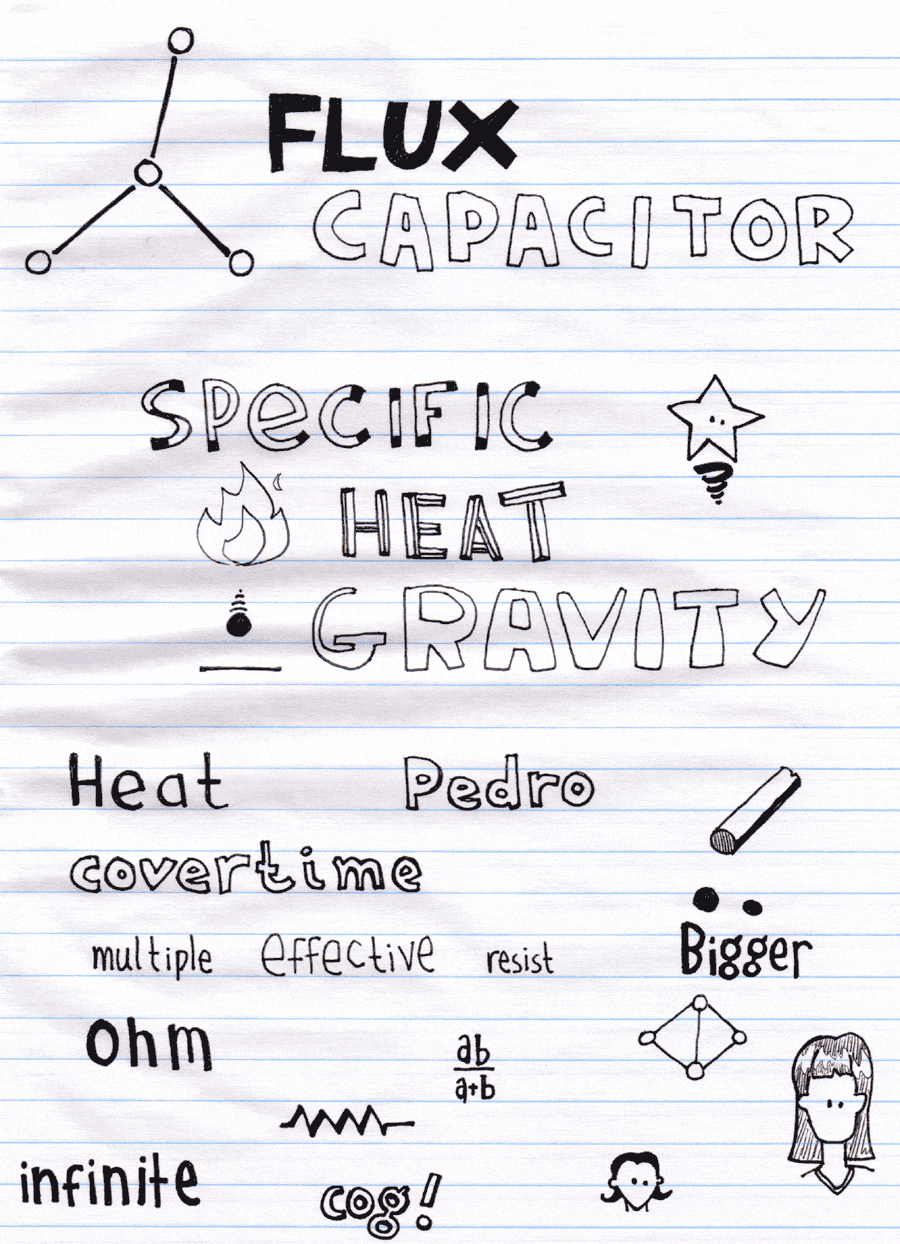 FLUX
CAPACITOR
SPeCIFIC
HEAT
GRAVITY
Heat
Pedro
covertime
multiple effective resist
Bigger
ohm
ab
a+b
infinite
cog!